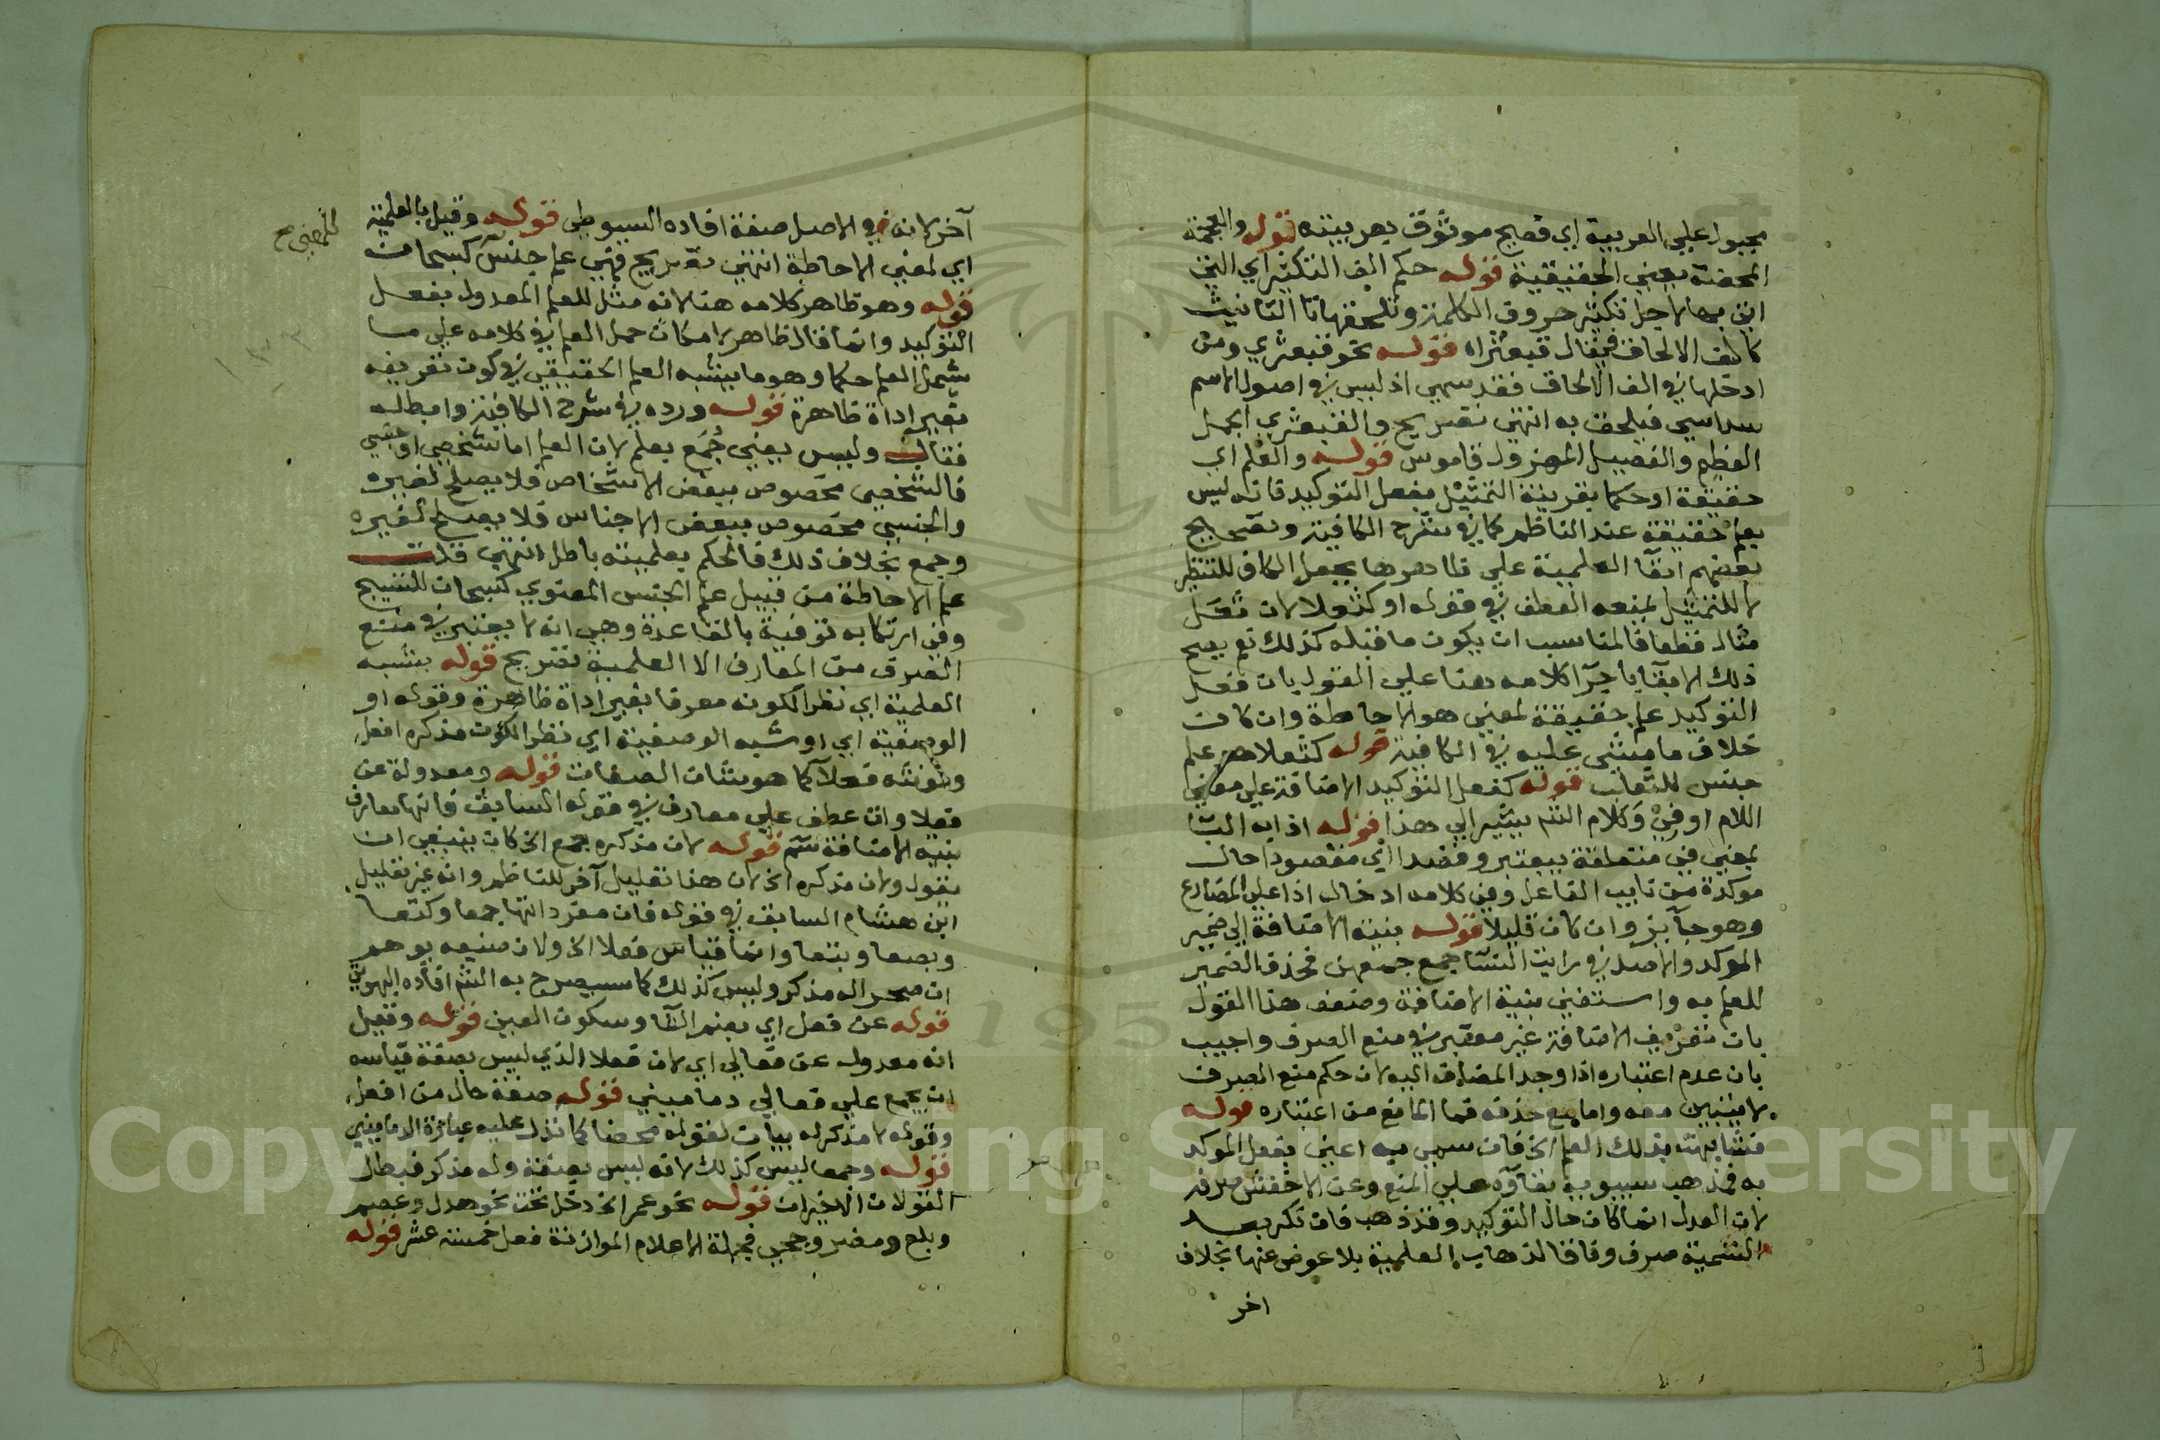 مجبول علي العربية اي فصيح موثوق بعربيته قوله والعجمة
المحضة يعني الحقيقية قوله حكم الف التكثير اي التي
اتي بها لاجل تكثير حروف الكلمة وتلحقها تا التانيث
كالف الالحاق فيقال قبعثراة قوله نحو قبعثري ومن
ادخلها في الف الالحاق فقد سهي اذ ليس في اصول الاسم
سداسي فيلحق به انتهي تصريح والقبعثري الجمل
العظيم والفصيل المهزول قاموس قوله والعلم اي
حقيقة او حكما بقرينة التمثيل بفعل التوكيد فانه ليس
بعلم حقيقة عند الناظم كما في شرح الكافية وتصحيح
بعضهم ابقا العلمية علي ظاهرها بجعل الكاف للتنظير
لا للتمثيل يمنعه العطف في قوله او كثعلا لان ثعل
مثال قطعا فالمناسب ان يكون ما قبله كذلك نعم يصح
ذلك الابقا باجرا كلامه هنا علي القول بان فعل
التوكيد علم حقيقة لمعني هو الاحاطة وان كان
خلاف ما مشي عليه في الكافية قوله كثعلا هو علم
جنس للثعلب قوله كفعل التوكيد الاضافة علي معني
اللام او في وكلام الشم يشير الي هذا قوله اذا به التا
بمعني في متعلقة بيعتبر وقصدا اي مقصودا حال
موكدة من نايب الفاعل وفي كلامه ادخال اذا علي المضارع
وهو جايز وان كان قليلا قوله بنية الاضافة الي ضمير
الموكد والاصل في رايت النسا جمع جمعهن فحذف الضمير
للعلم به واستغني بنية الاضافة وضعف هذا القول
بان تعريف الاضافة غير معتبر في منع الصرف واجيب
بان عدم اعتباره اذا وجد المضاف اليه لان حكم منع الصرف
لا يتبين معه واما مع حذفه فما المانع من اعتباره قوله
فشابهت بذلك العلم الخ فان سمي به اعني بفعل الموكد
به فمذهب سيبويه بقاوه علي المنع وعن الاخفش صرفه
لان العدل انما كان حال التوكيد وقد ذهب فان نكر بعد
التسمية صرف وفاقا لذهاب العلمية بلا عوض عنها بخلاف
اخر
آخر لانه في الاصل صفة افاده السيوطي قوله وقيل بالعلمية
اي لمعني الاحاطة انتهي تصريح فهي علم جنس كسبحان
للمعني صح
قوله وهو ظاهر كلامه هنا لانه مثل للعلم المعدول بفعل
التوكيد وانما قال ظاهر لامكان حمل العلم في كلامه علي ما
شمل العلم حكما وهو ما يشبه العلم الحقيقي في كون تعريفه
بغير اداة ظاهرة قوله ورده في شرح الكافية وابطله
فقال وليس يعني جمع بعلم لان العلم اما شخصي او جنسي
فالشخصي مخصوص ببعض الاشخاص فلا يصلح لغيره
والجنسي مخصوص ببعض الاجناس فلا يصلح لغيره
وجمع بخلاف ذلك فالحكم بعلميته باطل انتهي قلت
علم الاحاطة من قبيل علم الجنس المعنوي كسبحان للتسبيح
وفي ارتكابه توفية بالقاعدة وهي انه لا يعتبر في منع
الصرف من المعارف الا العلمية تصريح قوله بشبه
العلمية اي نظرا لكونه معرفا بغير اداة ظاهرة وقوله او
الوصفية اي او شبه الوصفية اي نظرا لكون مذكره افعل
ومونثه فعلا كما هو شان الصفات قوله ومعدولة عن
فعلا وان عطف علي معارف في قوله السابق فانها معارف
بنية الاضافة شم قوله لان مذكره جمع الخ كان ينبغي ان
يقول ولان مذكره الخ لان هذا تعليل آخر للناظم وانه غير تعليل
ابن هشام السابق في قوله فان مفرداتها جمعا وكتعا
وبصعا وبتعا وانما قياس فعلا الخ ولان صنيعه يوهم
ان صحرا له مذكر وليس كذلك كما سيصرح به الشم افاده البهوتي
قوله عن فعل اي بضم الفا وسكون العين قوله وقيل
انه معدول عن فعالي اي لان فعلا الذي ليس بصفة قياسه
ان يجمع علي فعالي دماميني قوله صفة حال من افعل
وقوله لا مذكر له بيان لقوله محضا كما تدل عليه عبارة الدماميني
قوله وجمعا ليس كذلك لانه ليس بصفة وله مذكر فبطل
القولان الاخيران قوله نحو عمر الخ دخل تحت نحو هدل وعصم
وبلع ومضر وجحي فجملة الاعلام الموازنة فعل خمسة عشر قوله